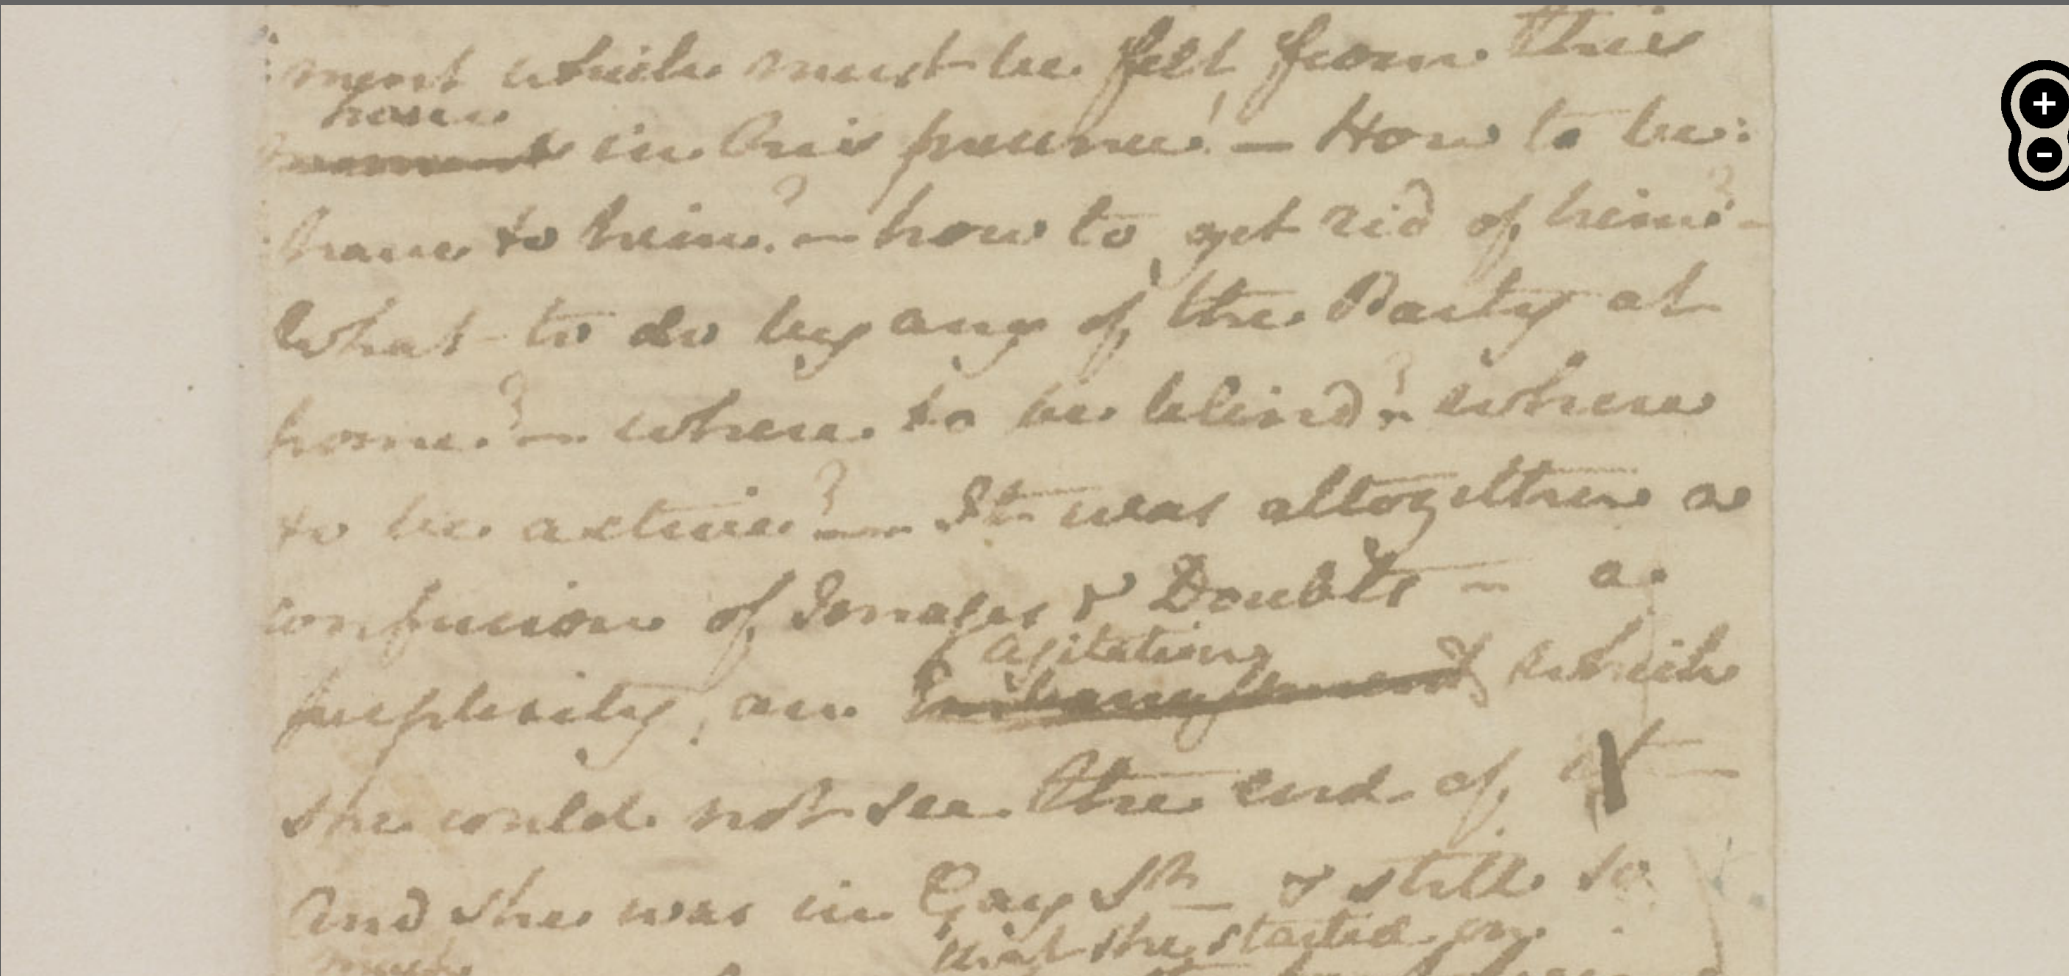 ment which must be felt from this
hour
moment in his presence! — How to be:
:have to him? — how to get rid of him? —
What to do by any of the Party at
home? — where to be blind? — where
to be active? — It was altogether a
confusion of Images & Doubts — a
agitation
perplexity, an Embarrassment which
she could not see the end of
And she was in Gay St — & still so
much
that she started on